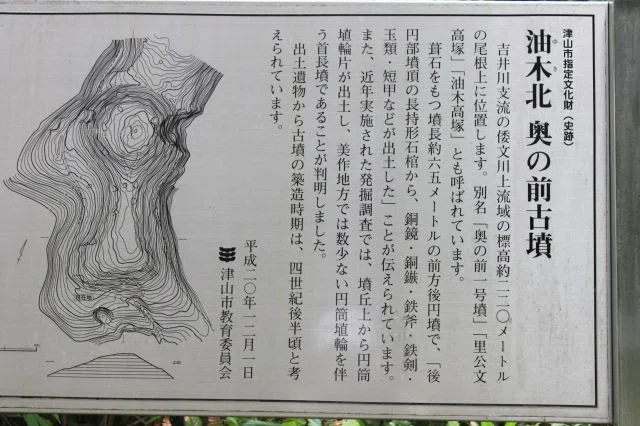 津山市指定文化財（史跡）
油木北 奥の前古墳
吉井川支流の倭文川上流域の標高約二二〇メートル
の尾根上に位置します。別名「奥の前一号墳」「里公文
高塚」「油木高塚」とも呼ばれています。
葺石をもつ墳長約六五メートルの前方後円墳で、「後
円部墳頂の長持形石棺から、銅鏡・銅鏃・鉄斧・鉄剣・
玉類・短甲などが出土した」ことが伝えられています。
また、近年実施された発掘調査では、墳丘上から円筒
埴輪片が出土し、美作地方では数少ない円筒埴輪を伴
う首長墳であることが判明しました。
出土遺物から古墳の築造時期は、四世紀後半頃と考
えられています。
平成二〇年一二月一日
津山市教育委員会
現在地